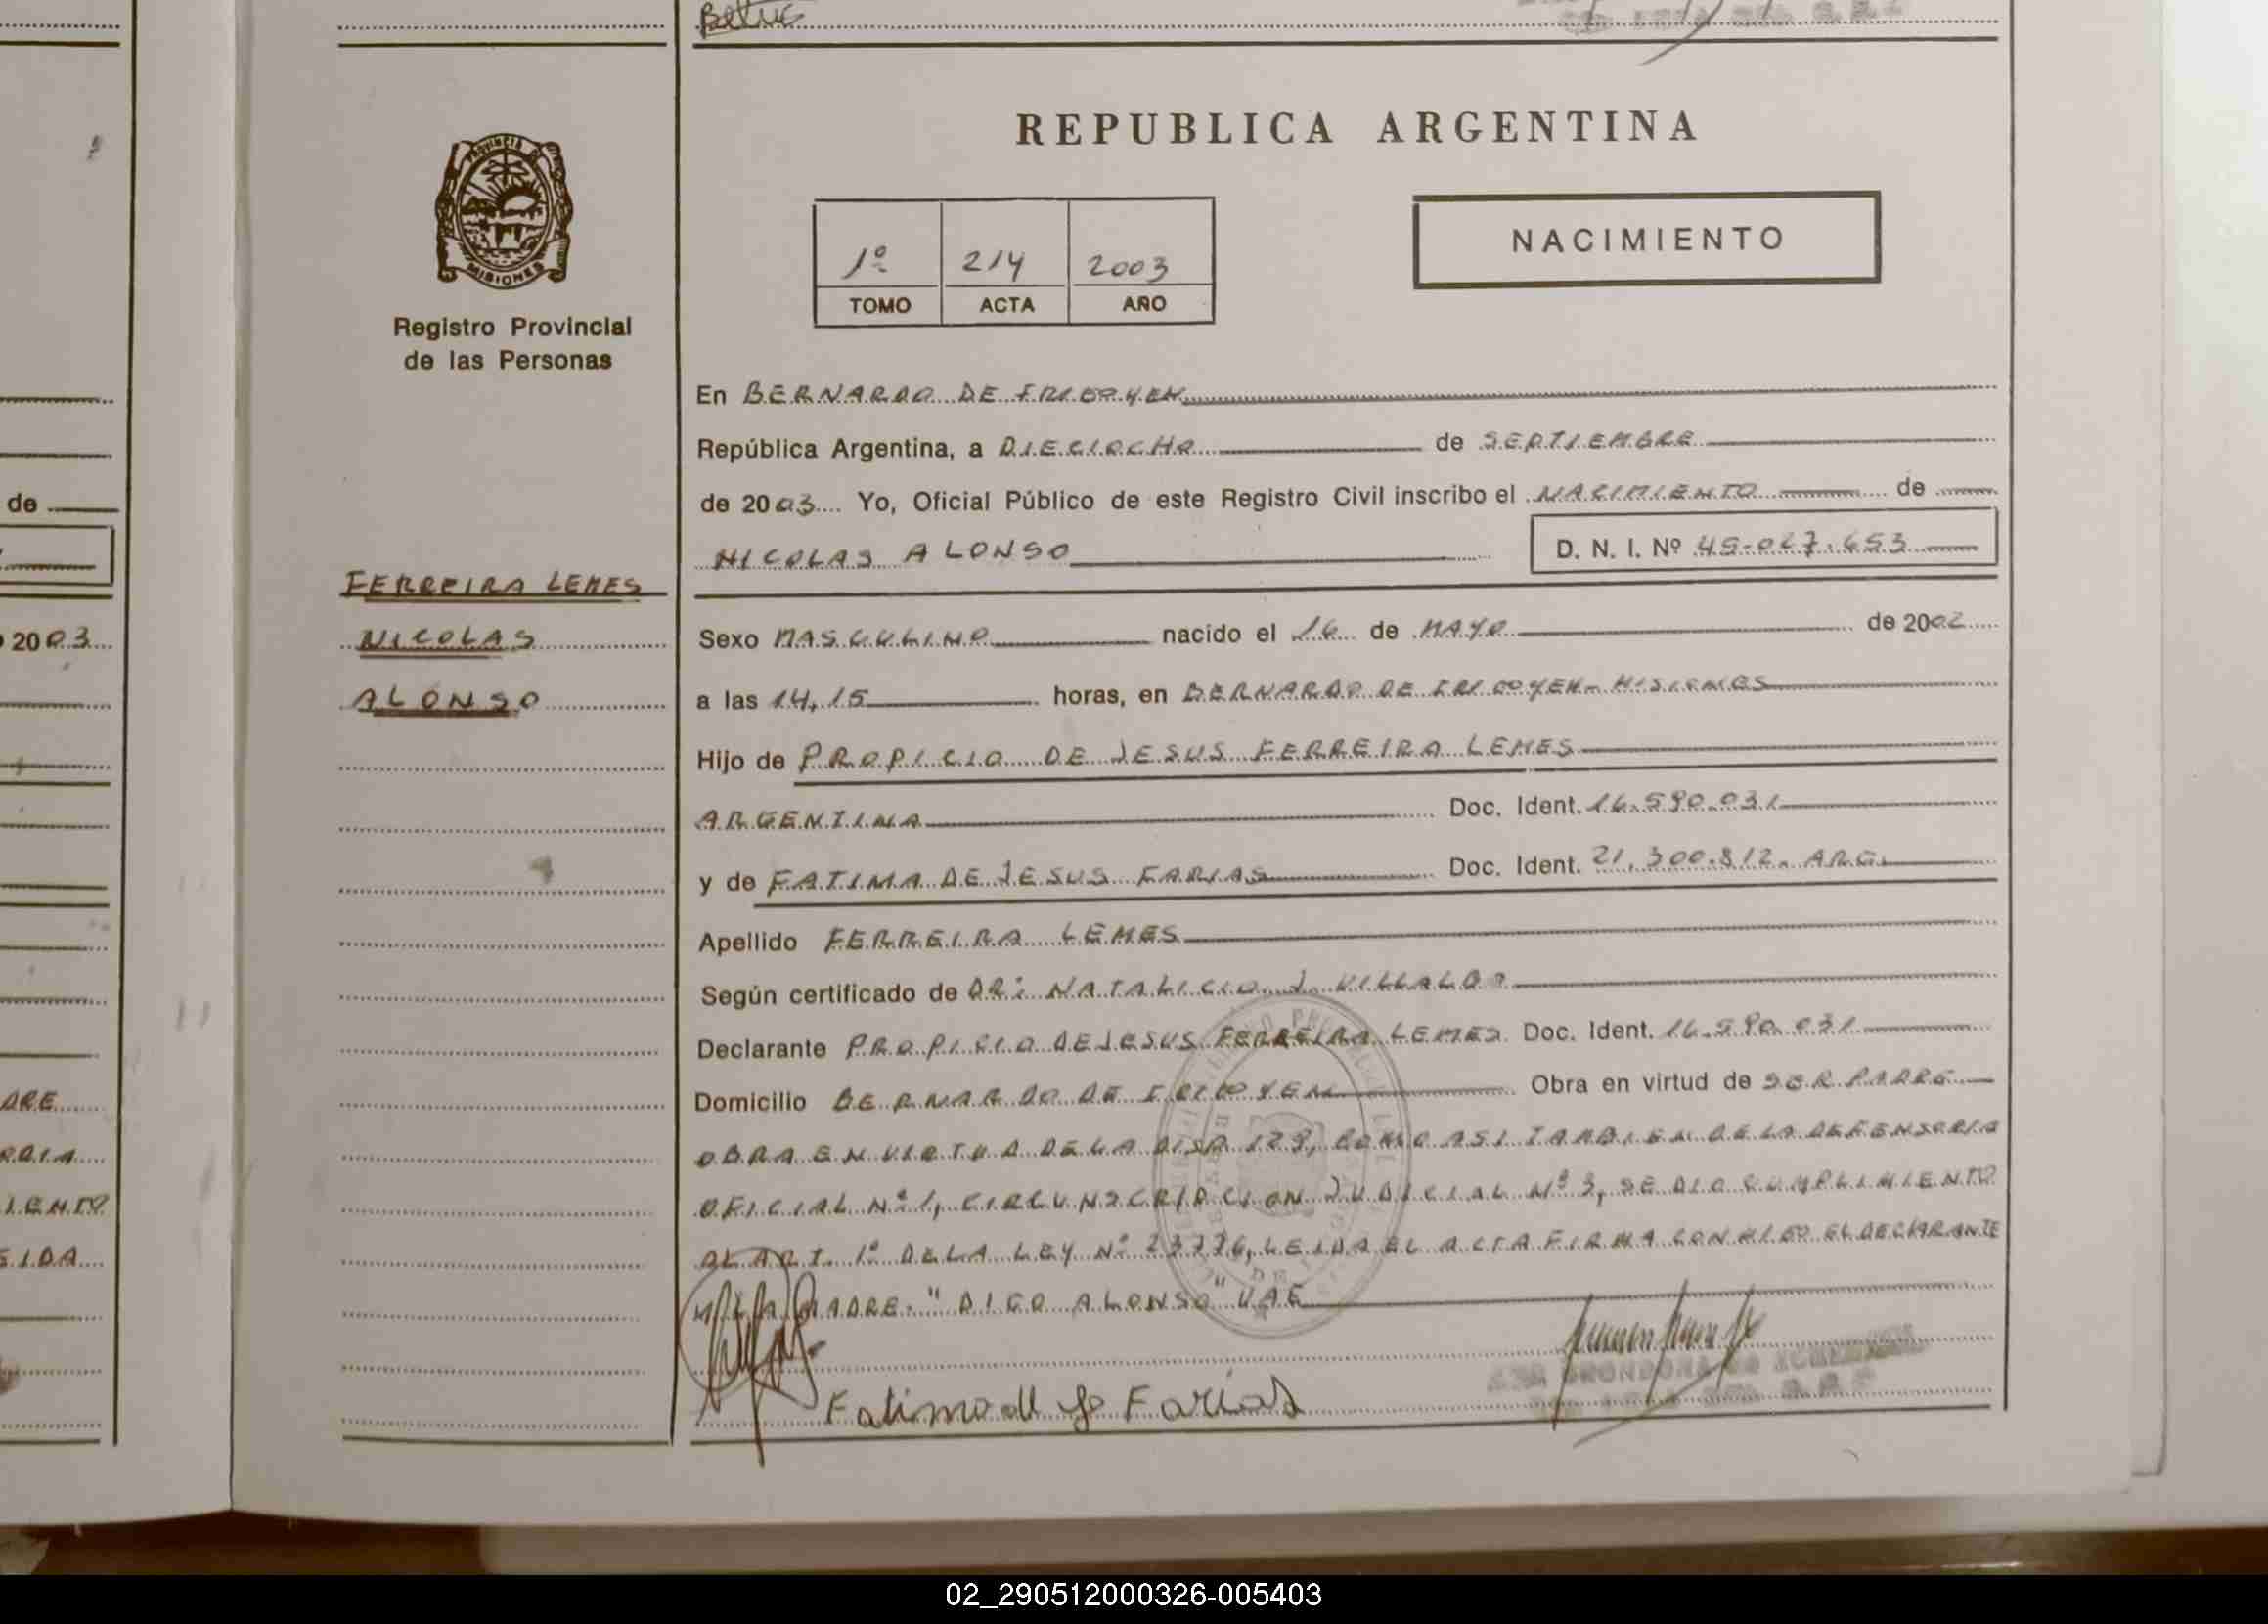 REPUBLICA ARGENTINA
PROVINCIA DE
MISIONES
Registro Provincial
de las Personas
1º 214 2003
TOMO ACTA AÑO
NACIMIENTO
En BERNARDO DE IRIGOYEN
República Argentina, a DIECIOCHO de SEPTIEMBRE
de 2003 Yo, Oficial Público de este Registro Civil inscribo el NACIMIENTO de
NICOLAS ALONSO D. N. I. Nº 45-027.653
FERREIRA LEMES
NICOLAS
ALONSO
Sexo MASCULINO nacido el 16 de MAYO de 2002
a las 14,15 horas, en BERNARDO DE IRIGOYEN- MISIONES
Hijo de PROPICIO DE JESUS FERREIRA LEMES
ARGENTINA Doc. Ident. 16.590.031
y de FATIMA DE JESUS FARIAS Doc. Ident. 21.300.812. ARG.
Apellido FERREIRA LEMES
Según certificado de DR: NATALICIO J. VILLALBA
Declarante PROPICIO DE JESUS FERREIRA LEMES Doc. Ident. 16.590.031
Domicilio BERNARDO DE IRIGOYEN Obra en virtud de SER PADRE
OBRA EN VIRTUD DE LA DISP. 129, COMO ASI TAMBIEN DE LA DEFENSORIA
OFICIAL Nº 1, CIRCUNSCRIPCION JUDICIAL Nº 3, SE DIO CUMPLIMIENTO
AL ART. 1º DE LA LEY Nº 23776, LEIDA EL ACTA FIRMA CONMIGO EL DECLARANTE
Y LA MADRE. "DIGO ALONSO" VALE
Fatima de Je Farias
de
2003
02_290512000326-005403